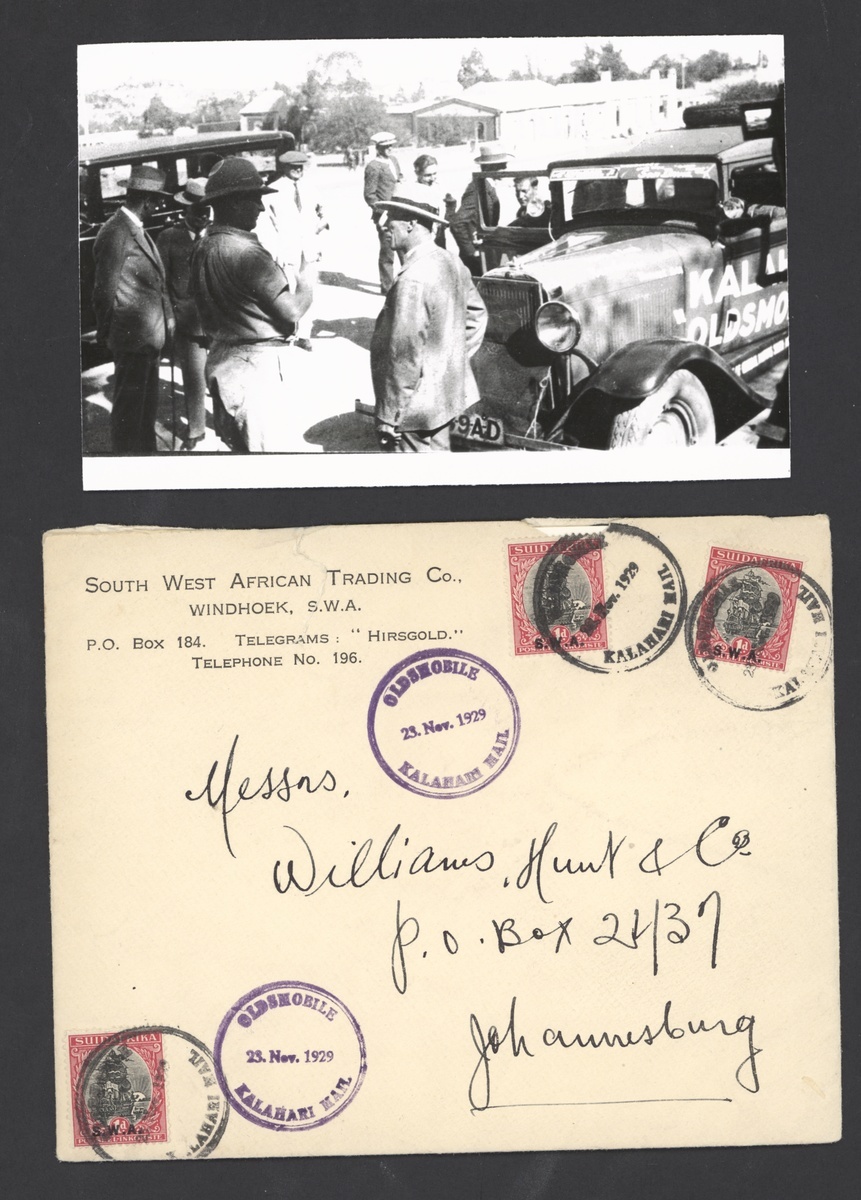 "KALA
"OLDSMO
9AD
SOUTH WEST AFRICAN TRADING CO.,
WINDHOEK, S.W.A.
P.O. BOX 184. TELEGRAMS: "HIRSGOLD."
TELEPHONE NO. 196.
SUIDAFRIKA
S.W.A.
1d
Nov. 1929
KALAHARI MAIL
SUIDAFRIKA
S.W.A.
1d
KALAHARI MAIL
OLDSMOBILE
23. Nov. 1929
KALAHARI MAIL
Messrs.
Williams, Hunt & Co
P.O. Box 2437
Johannesburg
SUIDAFRIKA
S.W.A.
KALAHARI MAIL
OLDSMOBILE
23. Nov. 1929
KALAHARI MAIL